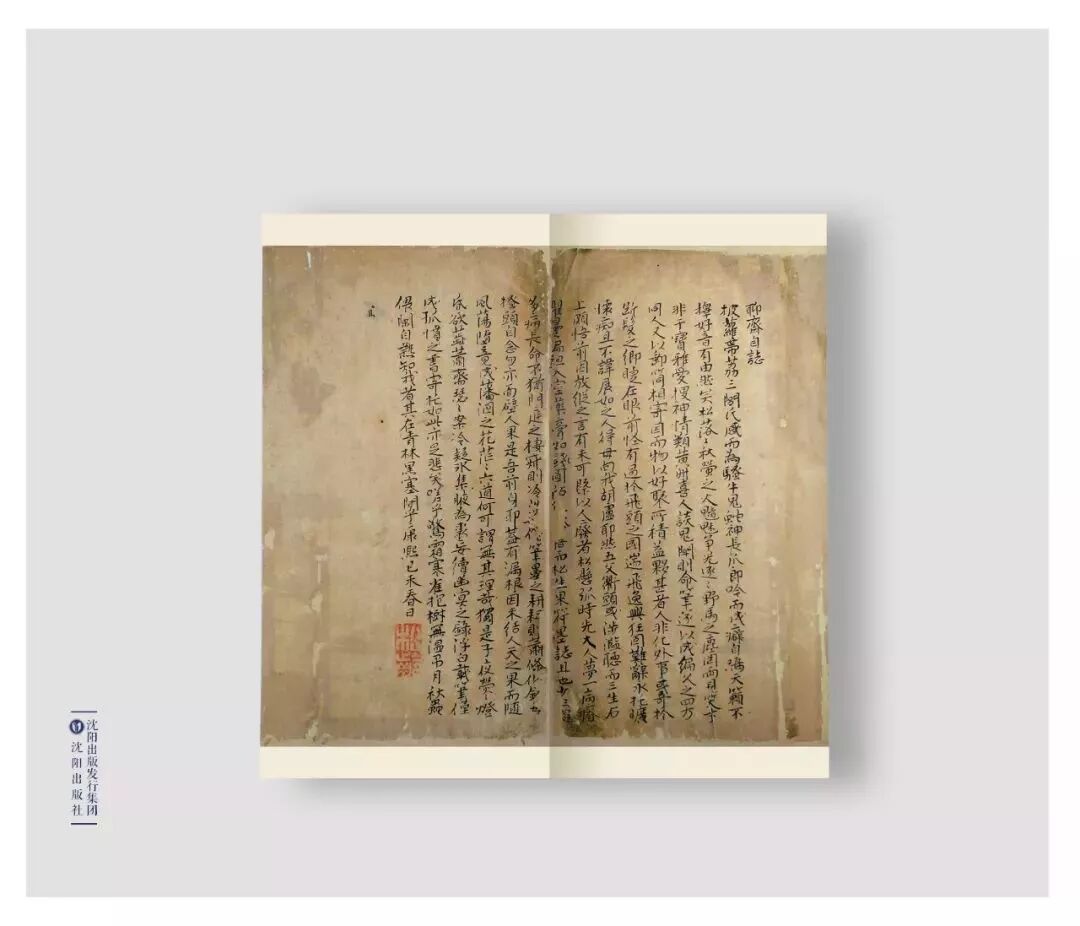 聊齋自誌
披蘿帶荔三閭氏感而為騷牛鬼蛇神長爪郎吟而成癖自鳴天籟不
擇好音有由然矣松落〻秋螢之火魑魅爭光逐〻野馬之塵罔兩見笑才
非干寶雅愛搜神情類黃州喜人談鬼聞則命筆遂以成編久之四方
同人又以郵筒相寄因而物以好聚所積益夥甚者人非化外事或奇於
斷髮之鄉睫在眼前怪有過於飛頭之國遄飛逸興狂固難辭永托曠
懷癡且不諱展如之人得毋向我胡盧耶然五父衢頭或涉濫聽而三生石
上頗悟前因放縱之言有未可概以人廢者松懸弧時先大人夢一病瘠
瞿曇偏袒入室藥膏如錢圓粘 寤而松生果符墨誌且也少羸
多病長命不猶門庭之棲寂則冷淡 筆墨之耕耘則蕭條似鉢每
搔頭自念勿亦面壁人果是吾前身耶蓋有漏根因未結人天之果而隨
風蕩墮竟成藩溷之花茫〻六道何可謂無其理哉獨是子夜熒〻燈
昏欲蕊蕭齋瑟〻案冷疑冰集腋為裘妄續幽冥之錄浮白載筆僅
成孤憤之書寄托如此亦足悲矣嗟乎驚霜寒雀抱樹無溫吊月秋蟲
偎闌自熱知我者其在青林黑塞間乎康熙己未春日
沈阳出版发行集团
沈阳出版社